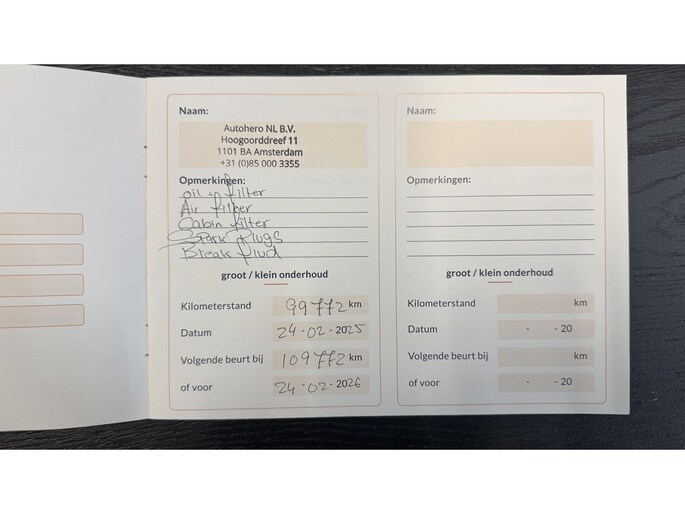 Naam:
Autohero NL B.V.
Hoogoorddreef 11
1101 BA Amsterdam
+31 (0)85 000 3355
Opmerkingen:
oil + filter
Air filter
Cabin filter
Spark Plugs
Break flud
groot / klein onderhoud
Kilometerstand 99772 km
Datum 24-02-2025
Volgende beurt bij 109772 km
of voor 24-02-2026
Naam:
Opmerkingen:
groot / klein onderhoud
Kilometerstand km
Datum - - 20
Volgende beurt bij km
of voor - - 20